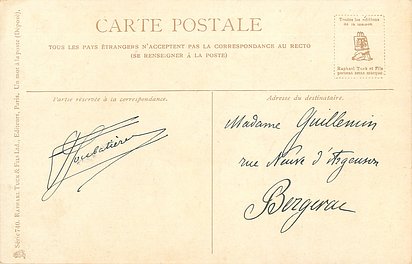 CARTE POSTALE
TOUS LES PAYS ÉTRANGERS N'ACCEPTENT PAS LA CORRESPONDANCE AU RECTO
(SE RENSEIGNER À LA POSTE)
Toutes les éditions
de la maison
Raphael Tuck et Fils
portent cette marque
Partie réservée à la correspondance.
Adresse du destinataire.
Madame Guillemin
rue Neuve d'Argenson
Bergerac
Série 740. RAPHAEL TUCK & FILS Ltd., Editeurs, Paris. Un mot à la poste (Déposé).